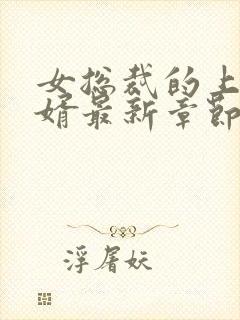 女总裁的上
婿最新章节
浮屠妖